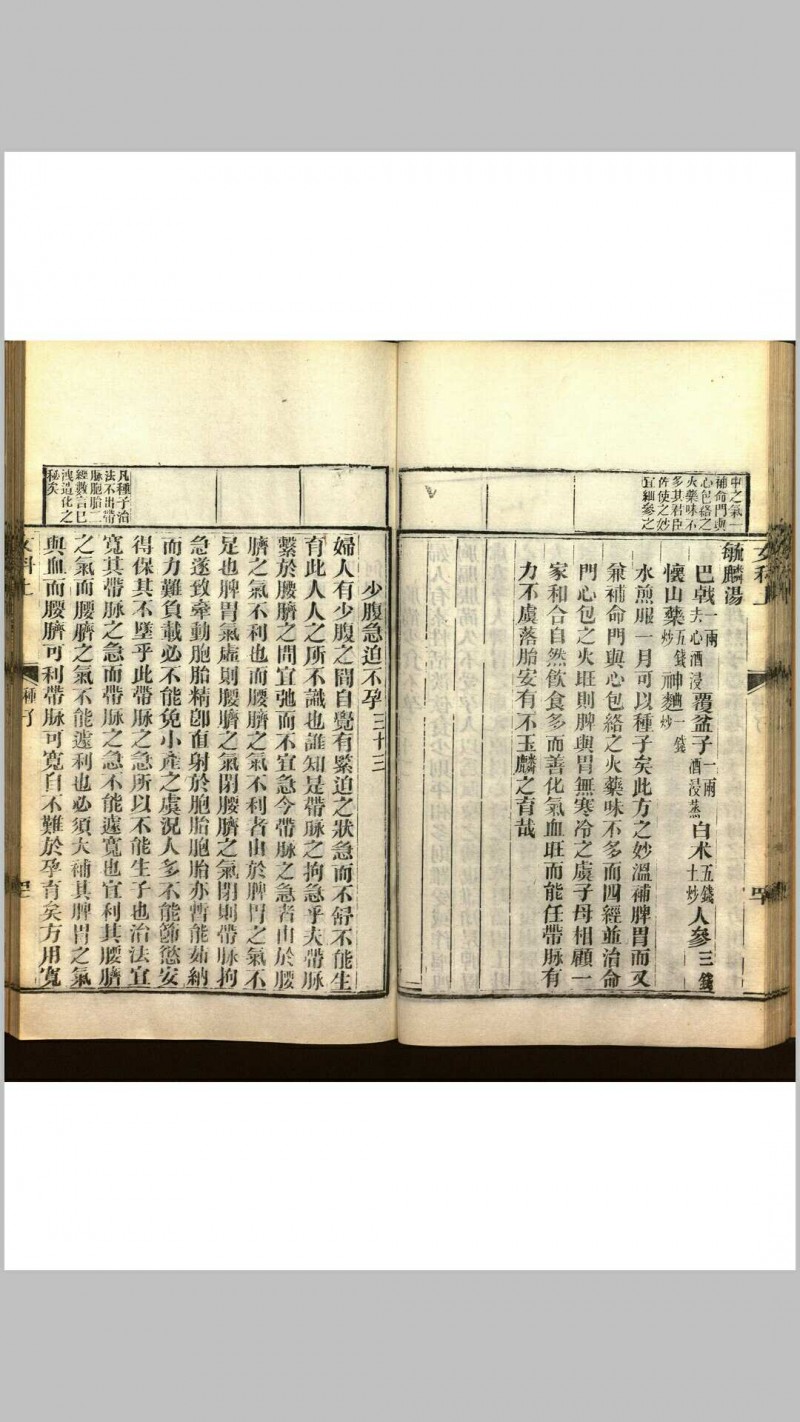 中之氣一
補命門與
心包絡之
火藥味不
多其君臣
佐使之妙
宜細參之
毓麟湯
巴戟一兩去心酒浸覆盆子一兩酒浸蒸白术五錢土炒人參三錢
懷山藥五錢炒神麯一錢炒
水煎服一月可以種子矣此方之妙溫補脾胃而又
兼補命門與心包絡之火藥味不多而四經並治命
門心包之火旺則脾與胃無寒冷之虞子母相顧一
家和合自然飲食多而善化氣血旺而能任帶脉有
力不虞落胎安有不玉麟之育哉
凡種子治
法不出帶
脉胞胎二
經數言已
洩造化之
秘矣
少腹急迫不孕三十三
婦人有少腹之間自覺有緊迫之狀急而不舒不能生
育此人人之所不識也誰知是帶脉之拘急乎夫帶脉
繫於腰臍之間宜弛而不宜急今帶脉之急者由於腰
臍之氣不利也而腰臍之氣不利者由於脾胃之氣不
足也脾胃氣虛則腰臍之氣閉腰臍之氣閉則帶脉拘
急遂致牽動胞胎精卽直射於胞胎胞胎亦暫能茹納
而力難負載必不能免小產之虞況人多不能節慾安
得保其不墜乎此帶脉之急所以不能生子也治法宜
寬其帶脉之急而帶脉之急不能遽寬也宜利其腰臍
之氣而腰臍之氣不能遽利也必須大補其脾胃之氣
與血而腰臍可利帶脉可寬自不難於孕育矣方用寬
女科上
種子